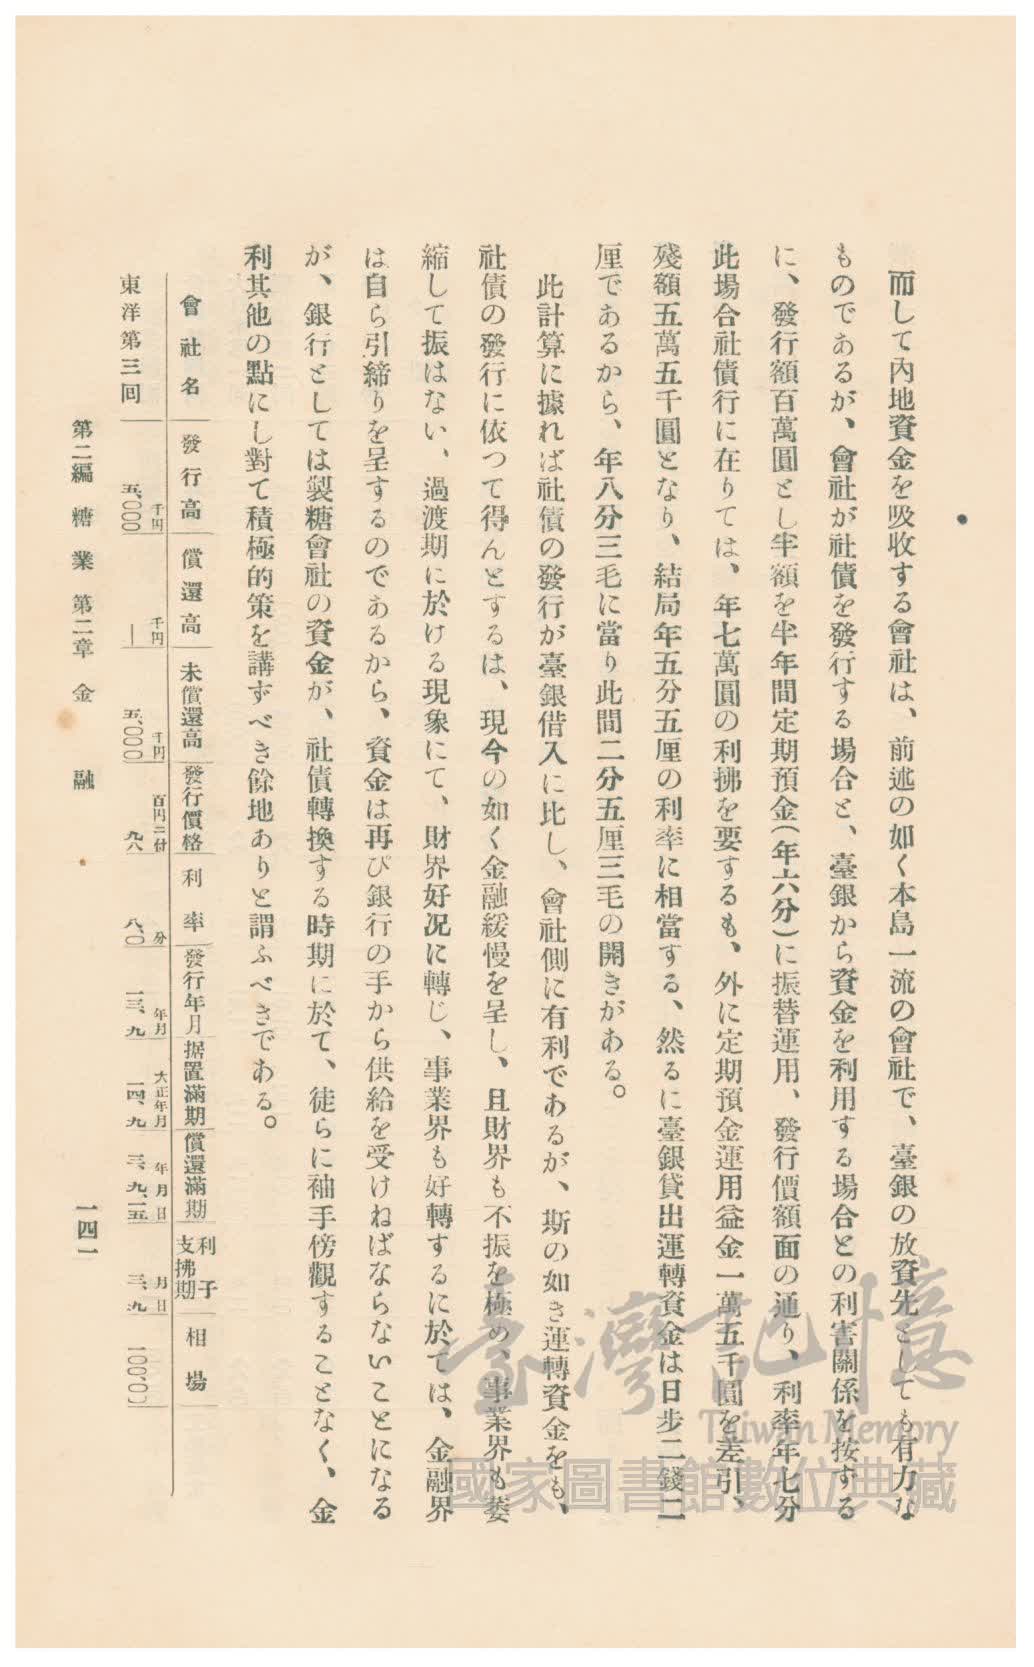 而して內地資金を吸收する會社は、前述の如く本島一流の會社で、臺銀の放資先としても有力な
ものであるが、會社が社債を發行する場合と、臺銀から資金を利用する場合との利害關係を按ずる
に、發行額百萬圓とし半額を半年間定期預金(年六分)に振替運用、發行價額面の通り、利率年七分
此場合社債行に在りては、年七萬圓の利拂を要するも、外に定期預金運用益金一萬五千圓を差引、
殘額五萬五千圓となり、結局年五分五厘の利率に相當する、然るに臺銀貸出運轉資金は日步二錢二
厘であるから、年八分三毛に當り此間二分五厘三毛の開きがある。
此計算に據れば社債の發行が臺銀借入に比し、會社側に有利であるが、斯の如き運轉資金をも、
社債の發行に依つて得んとするは、現今の如く金融緩慢を呈し、且財界も不振を極め、事業界も萎
縮して振はない、過渡期に於ける現象にて、財界好況に轉じ、事業界も好轉するに於ては、金融界
は自ら引締りを呈するのであるから、資金は再び銀行の手から供給を受けねばならないことになる
が、銀行としては製糖會社の資金が、社債轉換する時期に於て、徒らに袖手傍觀することなく、金
利其他の點にし對て積極的策を講ずべき餘地ありと謂ふべきである。
會社名 發行高 償還高 未償還高 發行價格 利率 發行年月 据置滿期 償還滿期 利子支拂期 相場
千円 千円 千円 百円ニ付 分 年月 大正年月 年月日 月日
東洋第三回 五、〇〇〇 — 五、〇〇〇 九八 八、〇 一三、九 一四、九 三、九、一五 三、九 一〇〇、〇〇
第二編 糖業 第二章 金融
一四一
臺灣記憶
Taiwan Memory
國家圖書館數位典藏